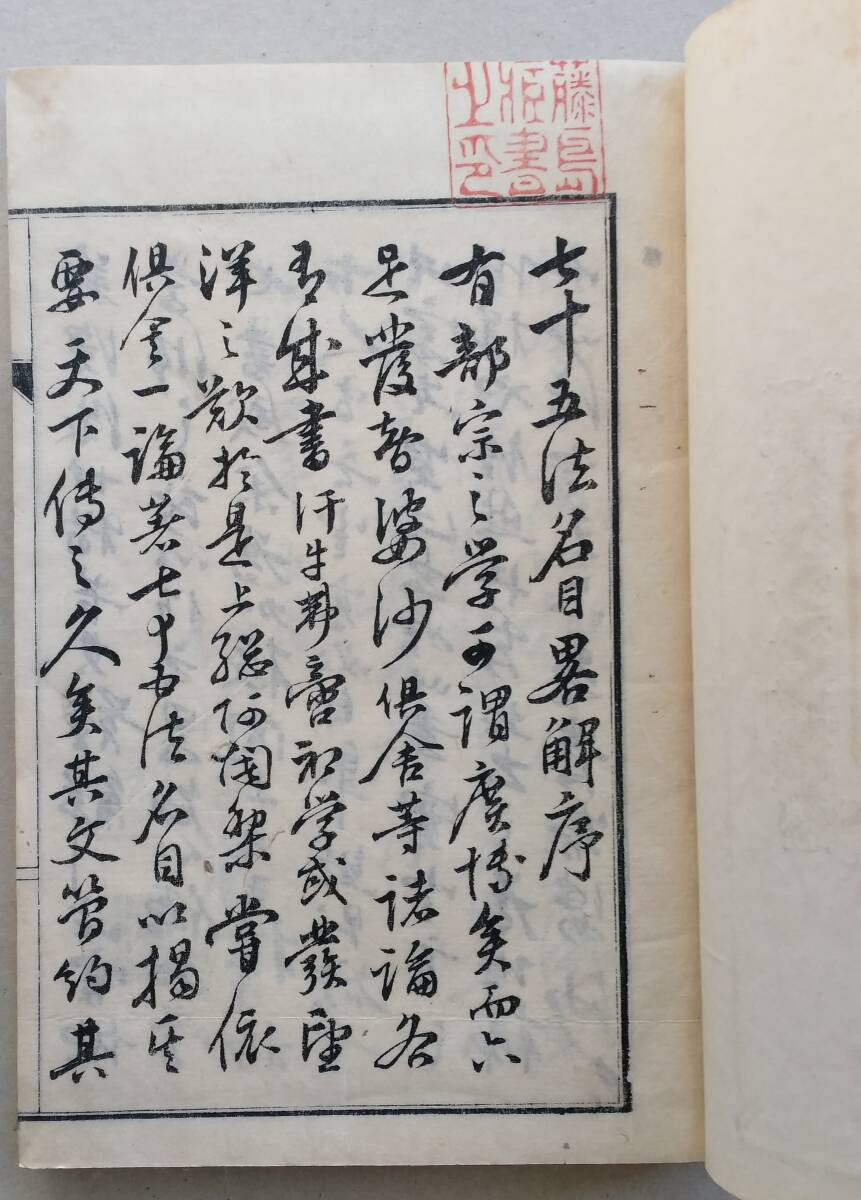 藤島
蔵書
之印
七十五法名目畧解序
有部宗之学可謂廣博矣而六
足發智婆沙俱舎等諸論各
有成書汗牛啻初学或發望
洋之歎於是上総阿闍梨嘗依
俱舎一論著七十五法名目以揭其
要天下傳之久矣其文簡約其